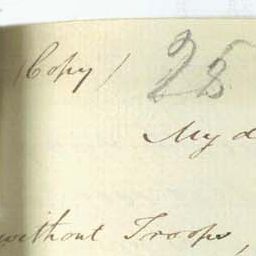 (Copy) 28
My d
without Troops,